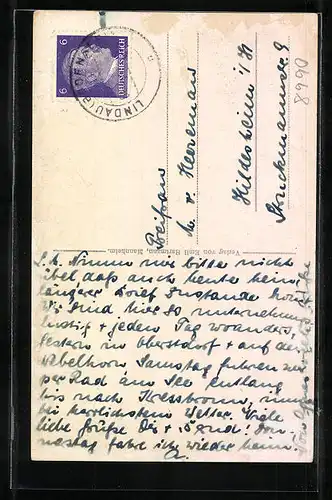 6 6
DEUTSCHES REICH
LINDAU (BODENSEE)
Freifrau
M. v. Heereman
Hildesheim i/H
Struckmannstr. 9
8990
Verlag von Emil Hartmann, Mannheim.
L. M. Nimm mir bitte nicht
übel, daß auch heute kein
längerer Brief zustande kommt
Wir sind hier so unternehmungs
lustig + jeden Tag woanders,
gestern in Oberstdorf + auf dem
Nebelhorn Samstag fuhren wir
per Rad am See entlang
bis nach Kressbronn,
bei herrlichstem Wetter. Viele
liebe Grüße Dir + Don-
nerstag fahre ich wieder heim.